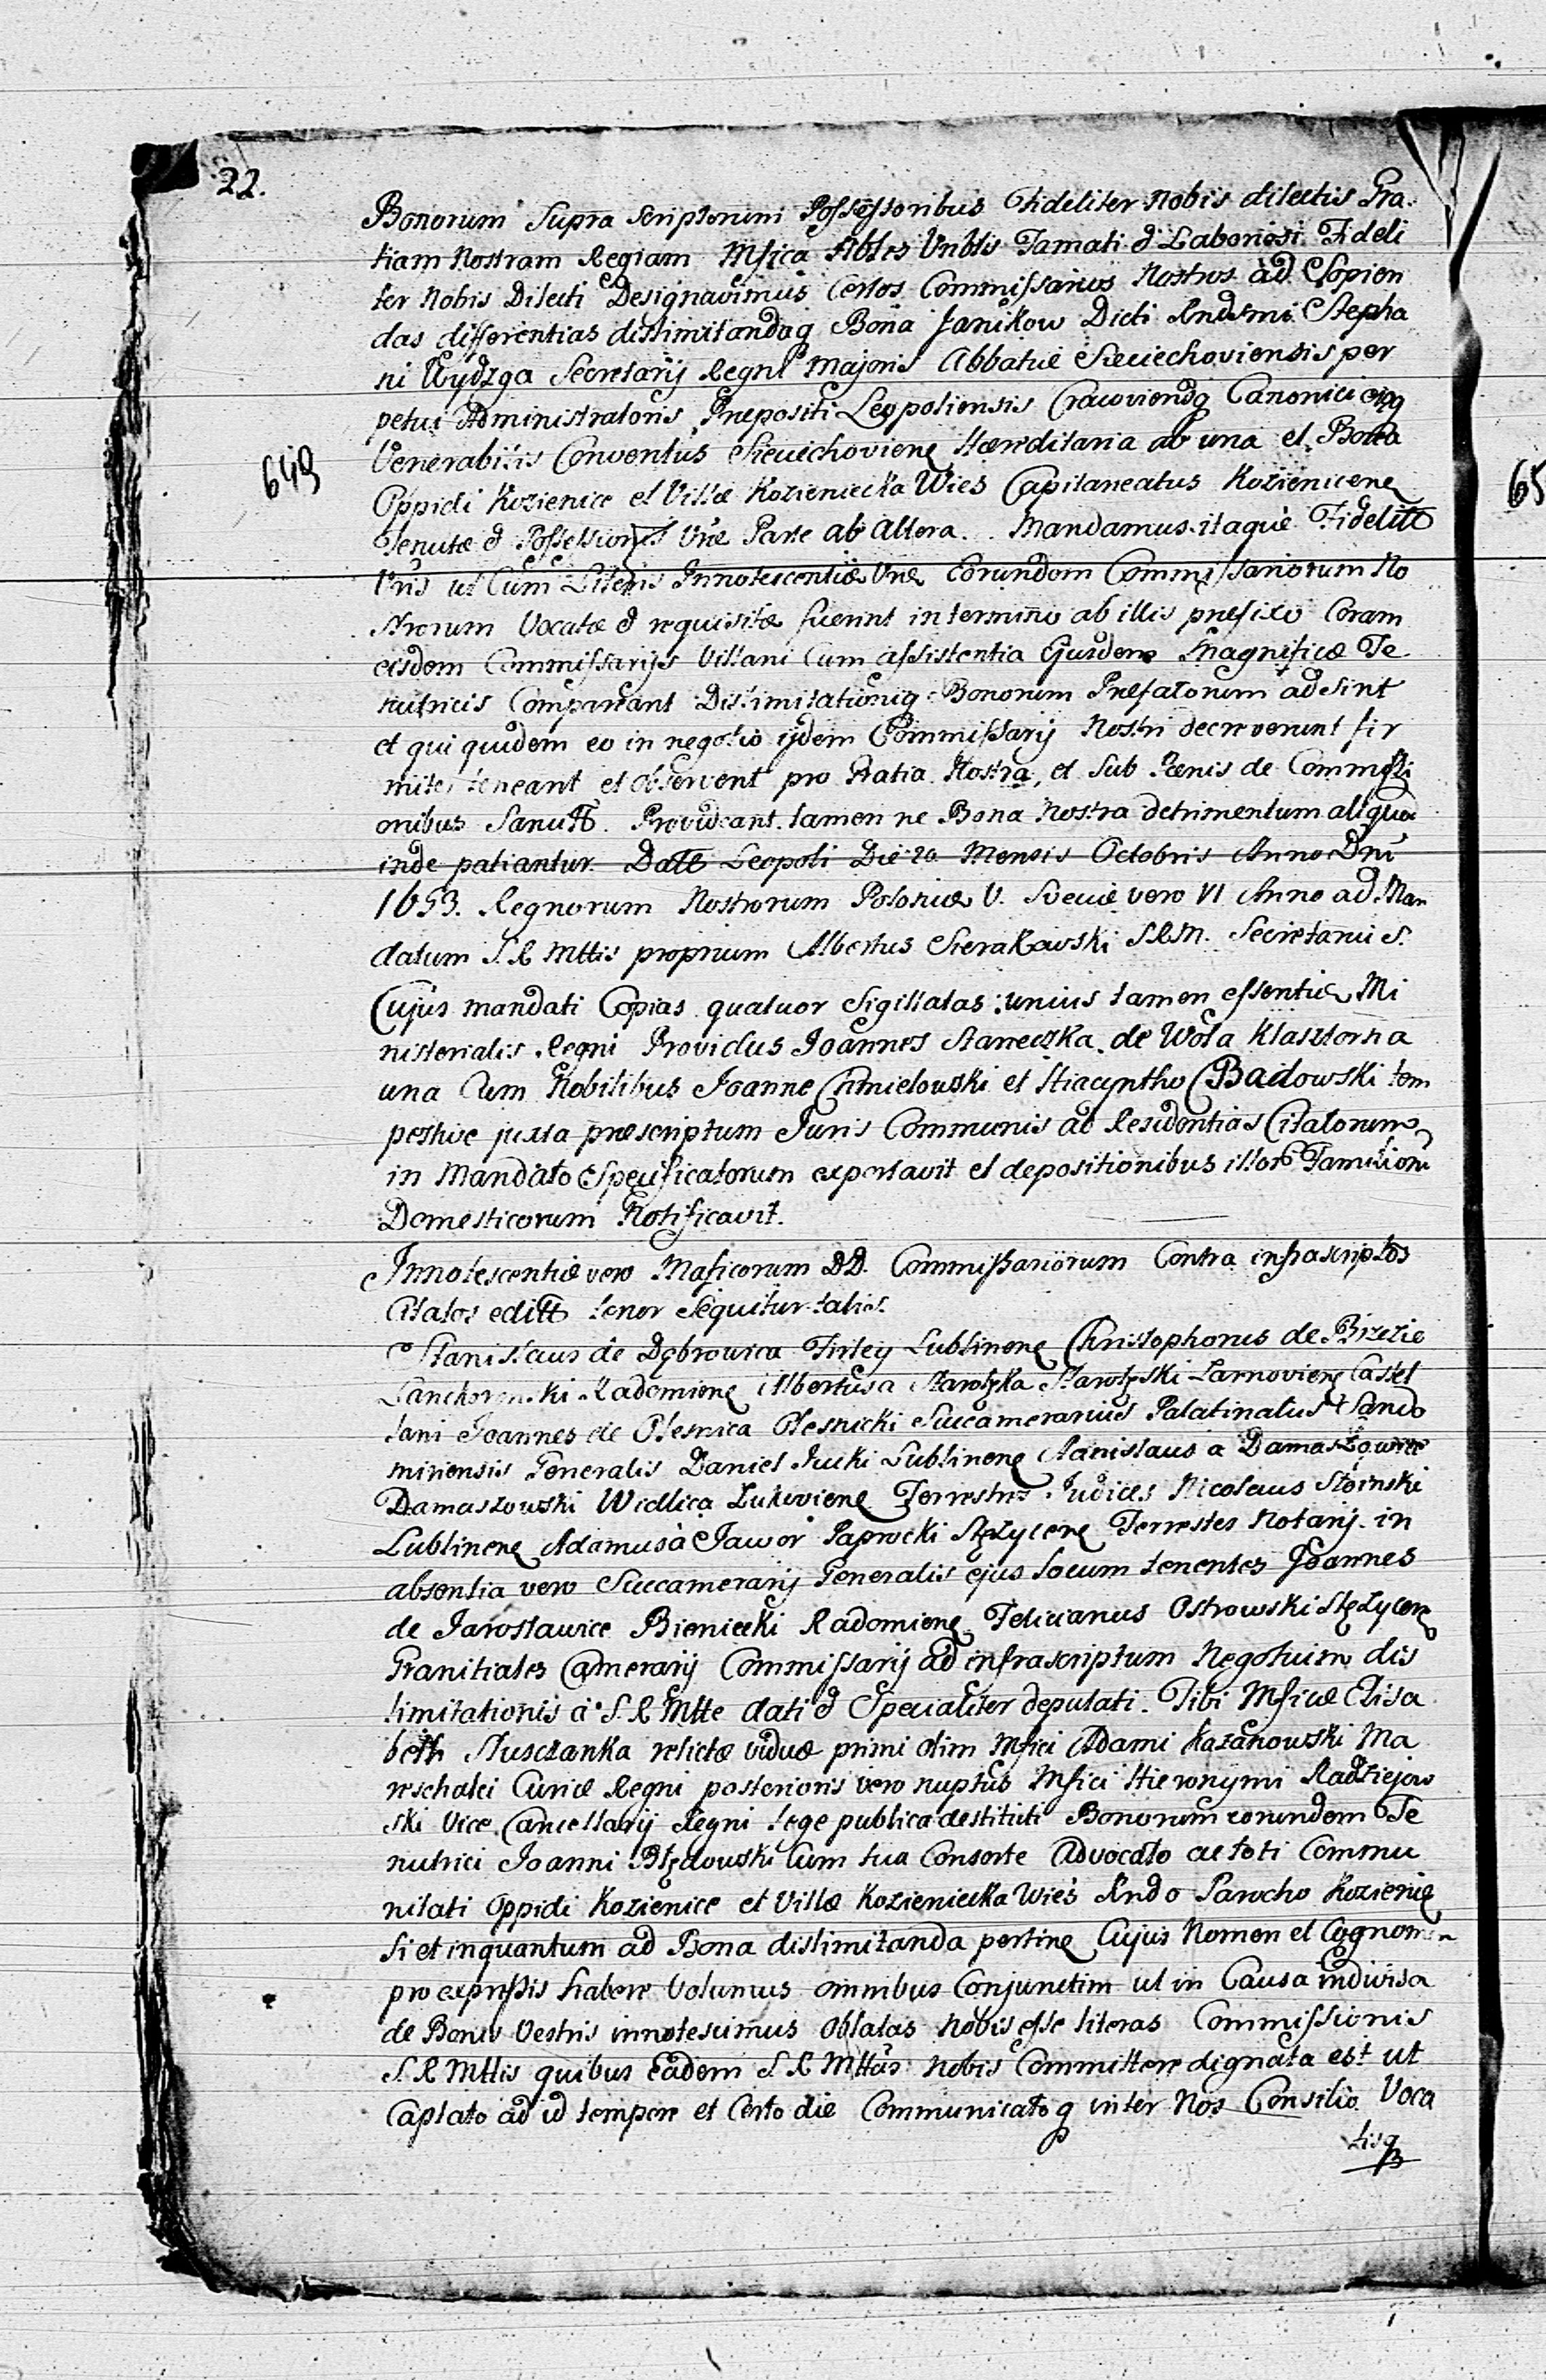 22.
Bonorum Supra Scriptorum Possessoribus Fideliter Nobis dilectis Gra-
tiam Nostram Regiam Mfica Nbles Vnbls Famati & Laboriosi Fideli
ter Nobis Dilecti Designavimus Certos Commissarios Nostros ad Sopien
das differentias dislimitandaq Bona Janikow Dicti Rndsmi Stepha
ni Wydzga Secretarij Regni Majoris Abbatiæ Sieciechoviensis per
petui Administratoris Præpositi Leopoliensis Cracoviensq Canonici ejq
649
Venerabilis Conventus Sieciechoviens Hæreditaria ab una et Bona
Oppidi Kozienice et Villæ Kozieniecka Wies Capitaneatus Koziénicens
Tenutæ & Possessionis Vræ Parte ab Altera. Mandamus itaquè Fidelitt
Vris ut Cum Literis Innotescentiæ Vræ Eorundem Commissariorum No
strorum Vocatæ & requisitæ fuerint in termino ab illis præfixo Coram
eisdem Commissarijs Villani Cum assistentia Ejusdem Magnificæ Te
nutricis Compareant Dislimitationiq Bonorum Præfatorum adsint
et qui quidem eo in negotio ijdem Commissarij Nostri decreverint fir
miter teneant et observent pro Gratia Nostra, et Sub Pænis de Commissi
onibus Sancitt. Provideant tamen ne Bona Nostra detrimentum aliquod
inde patiantur. Datt Leopoli Die 20 Mensis Octobris Anno Dni
1653. Regnorum Nostrorum Poloniæ V. Sveciæ vero VI Anno ad Man
datum S. R Mttis proprium Albertus Sierakowski S.R.M. Secretarius
Cujus mandati Copias quatuor Sigillatas unius tamen essentiæ Mi
nisterialis Regni Providus Joannes Staneczka de Wola Klasztorna
una Cum Nobilibus Joanne Chmielowski et Hiacyntho Badowski tem
pestive juxta præscriptum Juris Communis ad Residentias Citatorum
in Mandato Specificatorum exportavit et depositionibus illor Familiom
Domesticorum Notificavit.
Innotescentiæ vero Mgficorum DD. Commissariorum Contra infrascriptos
Citatos editt tenor Sequitur talis.
Stanislaus de Dąbrowica Firley Lublinens Christophorus de Brzezie
Lanckoronski Radomiens Albertus a Starołzka Starołzski Zarnoviens Castel
lani Joannes de Olesnica Olesnicki Succamerarius Palatinatus Sando
miriensis Generalis Daniel Sucki Lublinens Stanislaus a Damaszowice
Damaszowski Widlica Lukoviens Terrestres Judices Nicolaus Stoinski
Lublinens Adamus à Jawor Paprocki Stęzycens Terrestes Notarij in
absentia vero Succamerarij Generalis ejus locum tenentes Joannes
de Jarosławice Bieniecki Radomiens Felicianus Ostrowski Stęzycens
Granitiales Camerarij Commissarij ad infrascriptum Negotuim dis
limitationis à S. R Mtte dati & Specialiter deputati. Tibi Mficæ Elisa
beth Słusczanka relictæ viduæ primi olim Mfici Adami Kazanowski Ma
reschalci Curiæ Regni posterioris vero nuptus Mfici Hieronymi Radziejow
ski Vice Cancellarij Regni lege publica destituti Bonorum eorundem Te
nutrici Joanni Błędowski Cum sua Consorte Advocato ac toti Commu
nitati Oppidi Kozienice et Villæ Kozieniecka Wiés Rndo Parocho Kozienic
si et inquantum ad Bona dislimitanda pertine Cujus Nomen et Cognomen
pro expressis habere Volumus omnibus Conjunctim ut in Causa indivisa
de Bonis Vestris innotescimus oblatas nobis esse literas Commissionis
S. R Mttis quibus Eadem S. R Mttas nobis Committere dignata est ut
Captato ad id tempore et Certo die Communicatoq inter Nos Consilio Voca
tisq
65